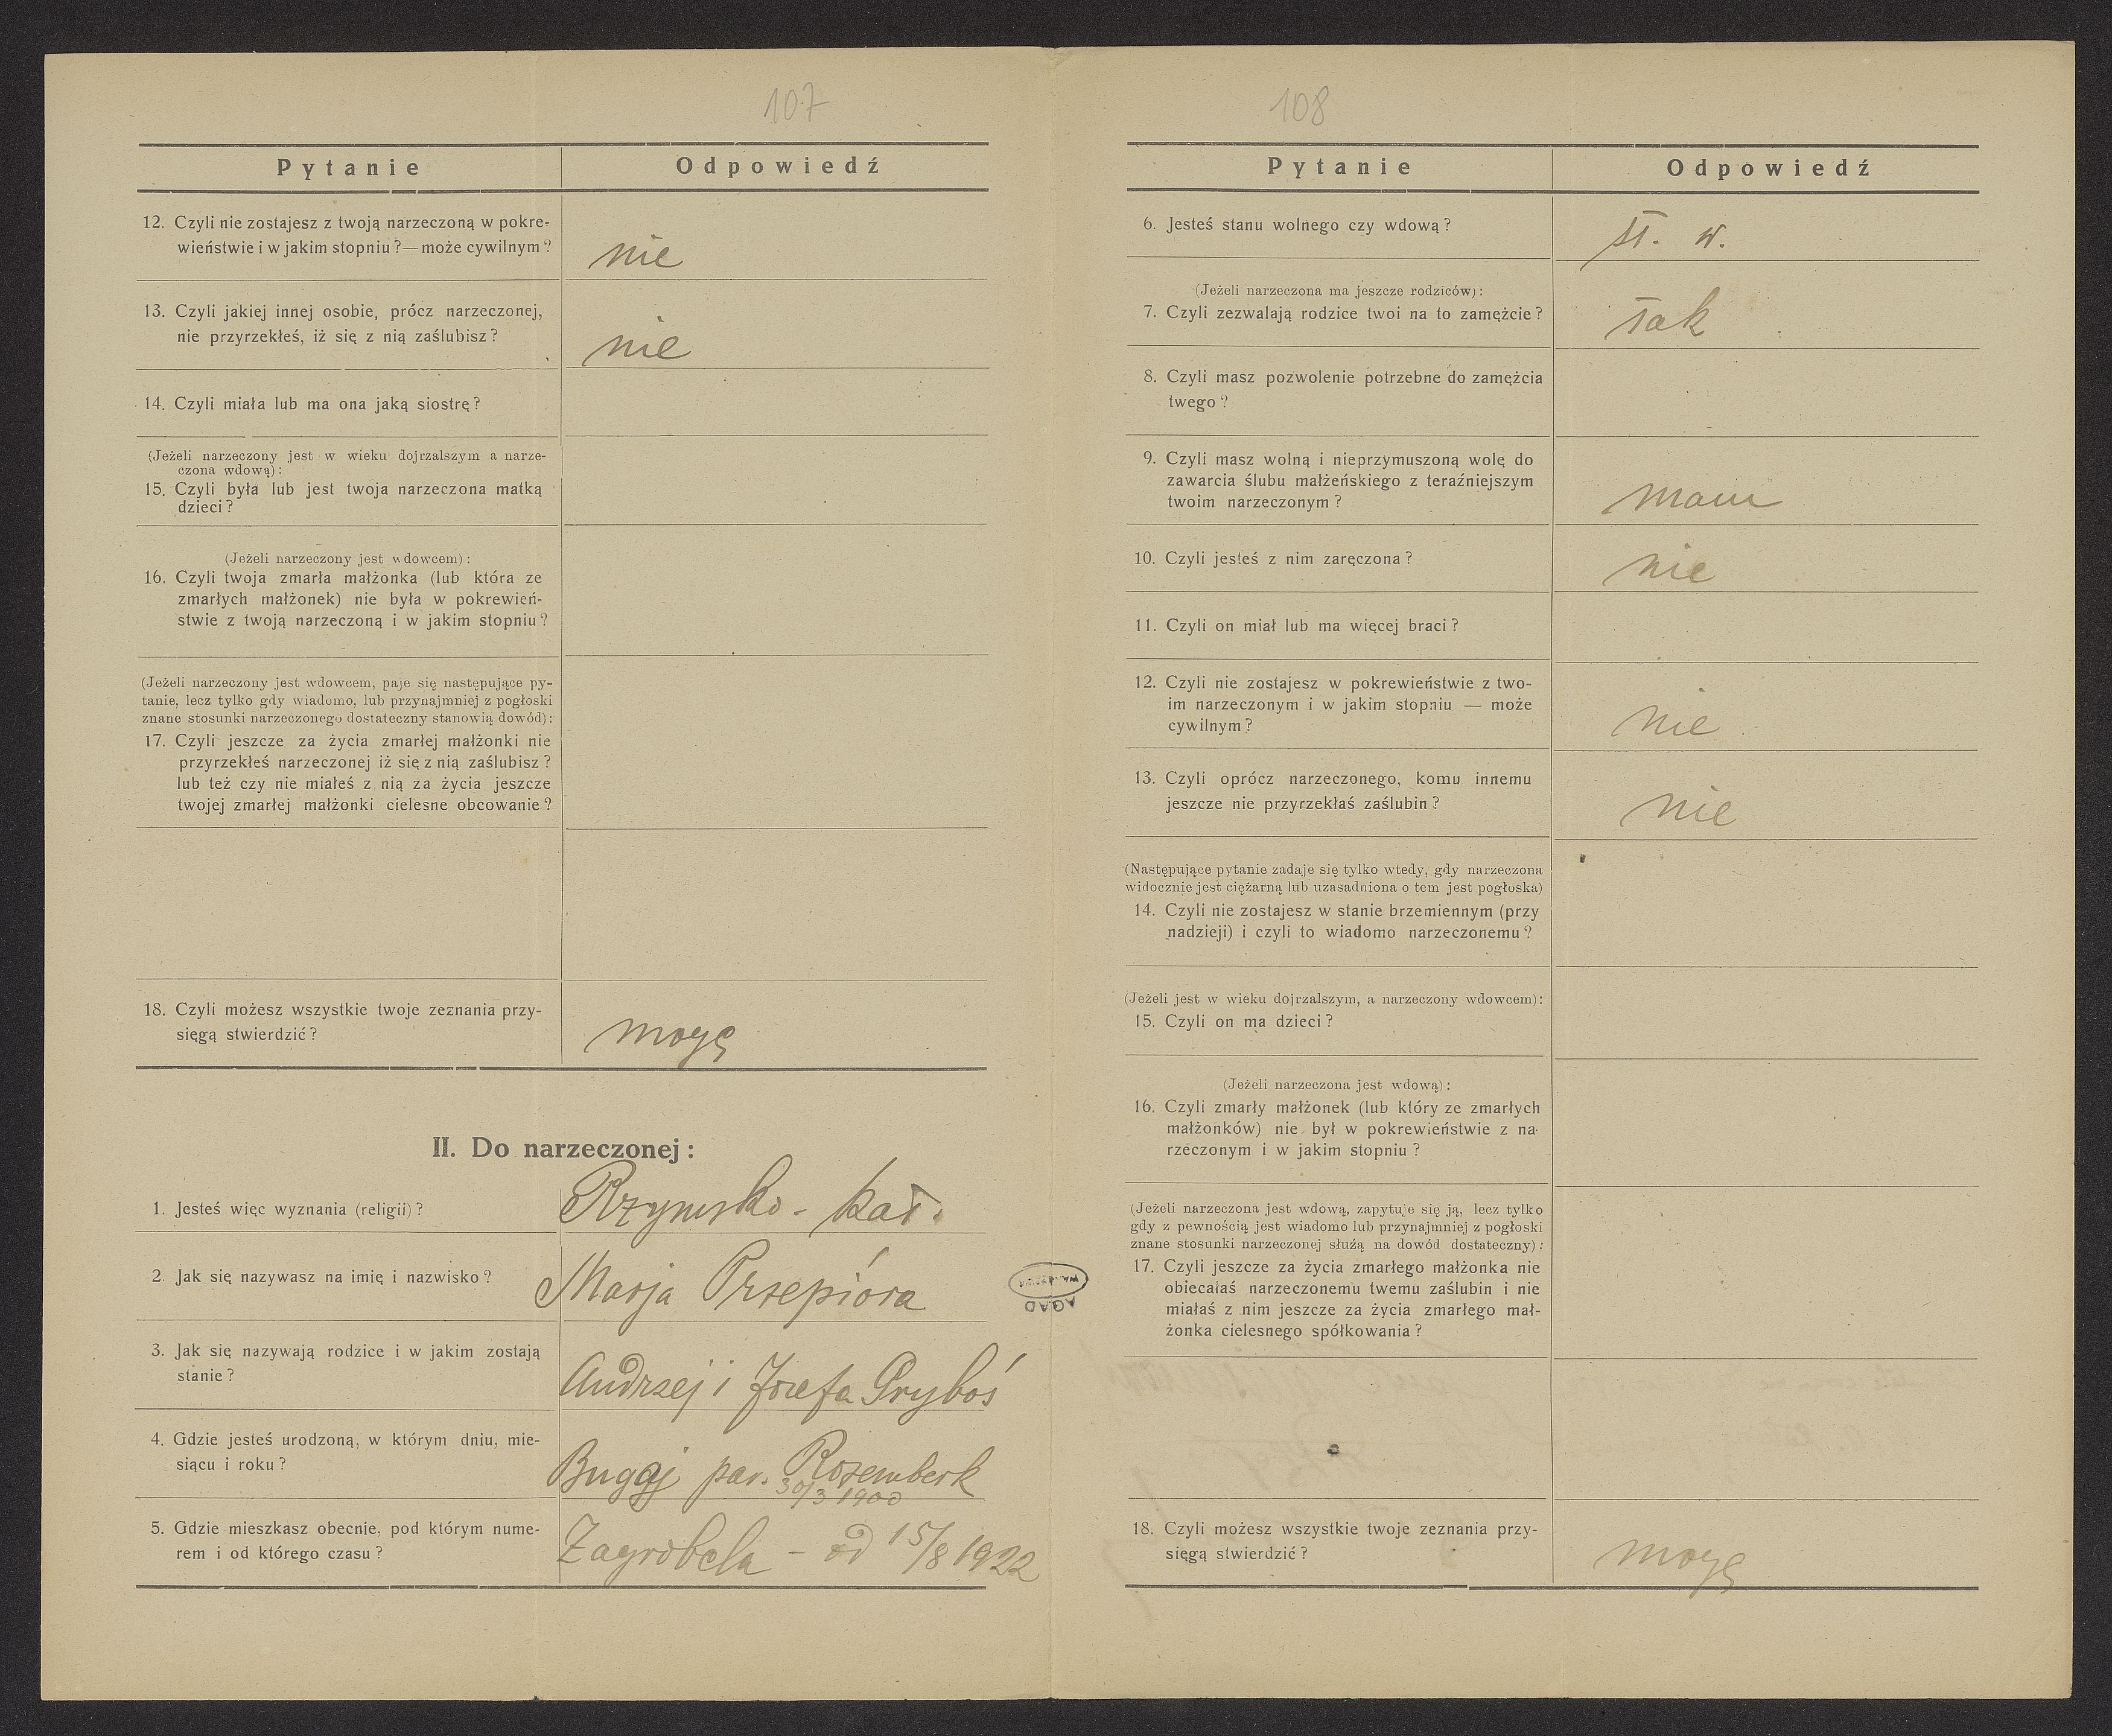 107
Pytanie Odpowiedź
12. Czyli nie zostajesz z twoją narzeczoną w pokre-
wieństwie i w jakim stopniu? — może cywilnym?
nie
13. Czyli jakiej innej osobie, prócz narzeczonej,
nie przyrzekłeś, iż się z nią zaślubisz?
nie
14. Czyli miała lub ma ona jaką siostrę?
(Jeżeli narzeczony jest w wieku dojrzalszym a narze-
czona wdową):
15. Czyli była lub jest twoja narzeczona matką
dzieci?
(Jeżeli narzeczony jest wdowcem):
16. Czyli twoja zmarła małżonka (lub która ze
zmarłych małżonek) nie była w pokrewień-
stwie z twoją narzeczoną i w jakim stopniu?
(Jeżeli narzeczony jest wdowcem, paje się następujące py-
tanie, lecz tylko gdy wiadomo, lub przynajmniej z pogłoski
znane stosunki narzeczonego dostateczny stanowią dowód):
17. Czyli jeszcze za życia zmarłej małżonki nie
przyrzekłeś narzeczonej iż się z nią zaślubisz?
lub też czy nie miałeś z nią za życia jeszcze
twojej zmarłej małżonki cielesne obcowanie?
18. Czyli możesz wszystkie twoje zeznania przy-
sięgą stwierdzić?
mogę
II. Do narzeczonej:
1. Jesteś więc wyznania (religii)?
Rzymsko-kat.
2. Jak się nazywasz na imię i nazwisko?
Marja Przepióra
3. Jak się nazywają rodzice i w jakim zostają
stanie?
Andrzej i Józefa Gryboś
4. Gdzie jesteś urodzoną, w którym dniu, mie-
siącu i roku?
Bugaj par. Rozemberk
30/3 1900
5. Gdzie mieszkasz obecnie, pod którym nume-
rem i od którego czasu?
Zagrobela - od 15/8 1922
AGAD
WARSZAWA
108
Pytanie Odpowiedź
6. Jesteś stanu wolnego czy wdową?
st. w.
(Jeżeli narzeczona ma jeszcze rodziców):
7. Czyli zezwalają rodzice twoi na to zamężcie?
tak
8. Czyli masz pozwolenie potrzebne do zamężcia
twego?
9. Czyli masz wolną i nieprzymuszoną wolę do
zawarcia ślubu małżeńskiego z teraźniejszym
twoim narzeczonym?
mam
10. Czyli jesteś z nim zaręczona?
nie
11. Czyli on miał lub ma więcej braci?
12. Czyli nie zostajesz w pokrewieństwie z two-
im narzeczonym i w jakim stopniu — może
cywilnym?
nie
13. Czyli oprócz narzeczonego, komu innemu
jeszcze nie przyrzekłaś zaślubin?
nie
(Następujące pytanie zadaje się tylko wtedy, gdy narzeczona
widocznie jest ciężarną lub uzasadniona o tem jest pogłoska)
14. Czyli nie zostajesz w stanie brzemiennym (przy
nadzieji) i czyli to wiadomo narzeczonemu?
(Jeżeli jest w wieku dojrzalszym, a narzeczony wdowcem):
15. Czyli on ma dzieci?
(Jeżeli narzeczona jest wdową):
16. Czyli zmarły małżonek (lub który ze zmarłych
małżonków) nie był w pokrewieństwie z na-
rzeczonym i w jakim stopniu?
(Jeżeli narzeczona jest wdową, zapytuje się ją, lecz tylko
gdy z pewnością jest wiadomo lub przynajmniej z pogłoski
znane stosunki narzeczonej służą na dowód dostateczny):
17. Czyli jeszcze za życia zmarłego małżonka nie
obiecałaś narzeczonemu twemu zaślubin i nie
miałaś z nim jeszcze za życia zmarłego mał-
żonka cielesnego spółkowania?
18. Czyli możesz wszystkie twoje zeznania przy-
sięgą stwierdzić?
mogę